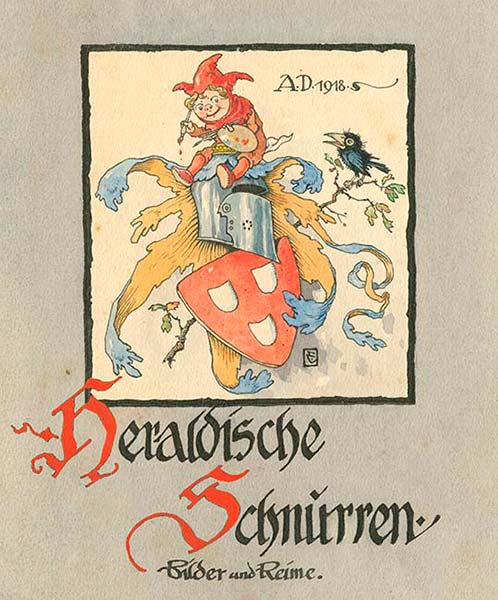 A.D. 1918.
Heraldische
Schnurren.
Bilder und Reime.